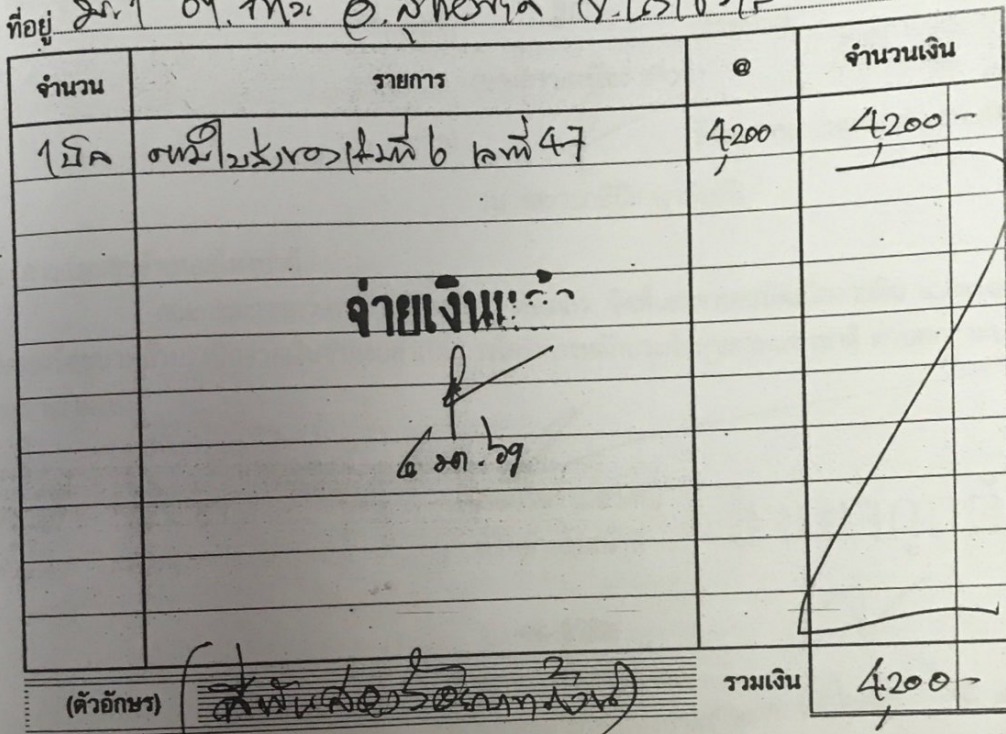 ที่อยู่
จำนวน รายการ @ จำนวนเงิน
1 บิล ตามใบส่งของ เล่มที่ 6 เลขที่ 47 4,200 4,200 -
จ่ายเงินแล้ว
(ตัวอักษร) (สี่พันสองร้อยบาทถ้วน) รวมเงิน 4,200 -